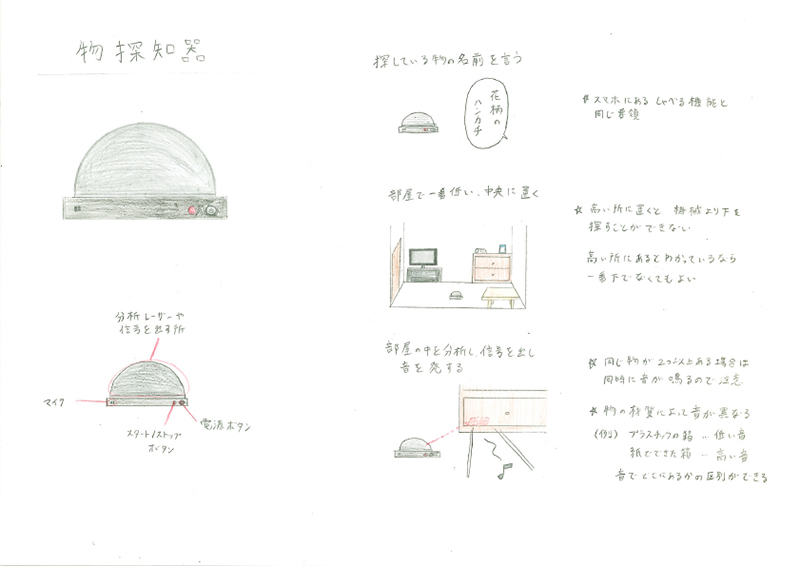 物探知器
分析レーザーや
信号を出す所
マイク
スタート/ストップ
ボタン
電源ボタン
探している物の名前を言う
花柄の
ハンカチ
＊スマホにあるしゃべる機能と
同じ要領
部屋で一番低い、中央に置く
☆高い所に置くと 機械より下を
探すことができない
高い所にあるとわかっているなら
一番下でなくてもよい
部屋の中を分析し、信号を出し
音を発する
☆同じ物が2つ以上ある場合は
同時に音が鳴るので注意
★物の材質によって音が異なる
(例) プラスチックの箱 … 低い音
紙でできた箱 … 高い音
音でどこにあるかの区別ができる